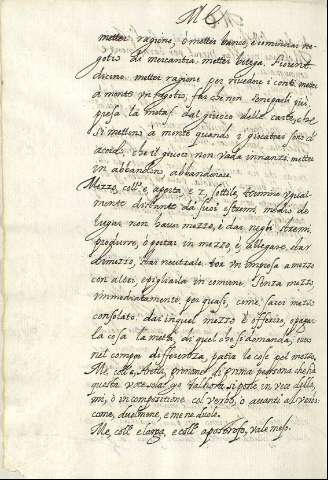 M E
metter ragione, è metter banco, cominciar ne-
gotio di mercantia, metter bottega. Fiorent.
dicono metter ragione per riveder i conti, metter
à monte un negotio, far che non
presa la metaf. dal giuoco delle carte, che
si mettono à monte quando i giocatori sono d'
acordo, che il giuoco non vada innanzi. metter
in abbandono, abbandonare.
Mezzo, coll'e, aperta e z, sottile, termine egual-
mente distante da suoi estremi, medio, di
luogar non haver mezzo, è dar negli estremi,
produrre, ò portar in mezzo è allegare, star
di mezzo, star neutrale. tor un impresa a mezzo
con altri, è pigliarla in comune. senza mezzo,
immediatamente, per quasi, come sarei mezzo
consolato. dar in quel mezzo è offerir, ò pagar
la cosa la metà, di quel che si domanda,
nel compor differenza, partir le cose pel mezzo.
Me, coll'e, stretta, pronome di prima persona che fa
questa voce talvolta si pone in vece di, a
mi, ò in compositione col verbo, ò avanti al verbo
come, duolmene, e me ne duole.
Me, coll'e larga, e coll'apostrofo, vale meso.